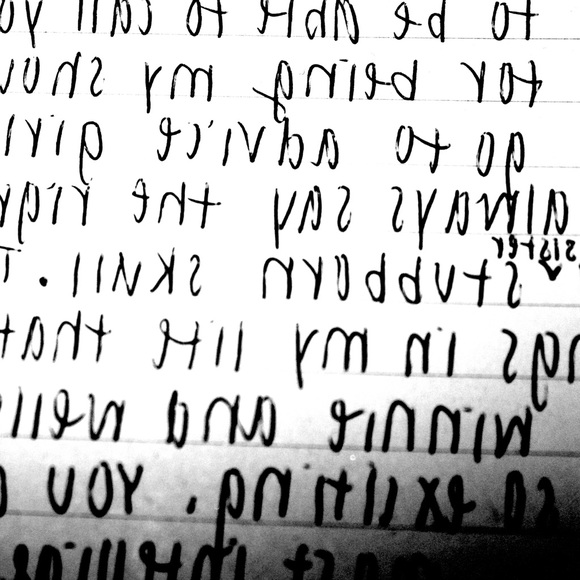 to be able to call yo
for being my shou
go to advice girl
always say the righ
sister
stubborn skull. T
ngs in my life that
and
so exciting. You